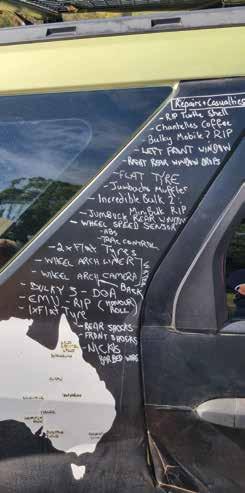 Repairs + Casualties
- RIP Turtle Shell
- Chantelles Coffee
- Bulky Mobile? RIP
- LEFT FRONT WINDOW
- RIGHT REAR WINDOW DROPS
- FLAT TYRE
- Jumbucks Muffler
- Incredible Bulk 2:
- Mini Bulk RIP
- JUMBUCK REAR WINDOW
- WHEEL SPEED SENSOR
- ABS
- TRAC CONTROL
- 2 x Flat Tyres
- WHEEL ARCH LINER
- WHEEL ARCH CAMERA
BACK
- BULKY 3 - DOA
- EMU - RIP (HONOUR ROLL
- 1x Flat Tyre
- REAR SHOCKS
- FRONT SHOCKS
- NICKS
BARBED WIRE